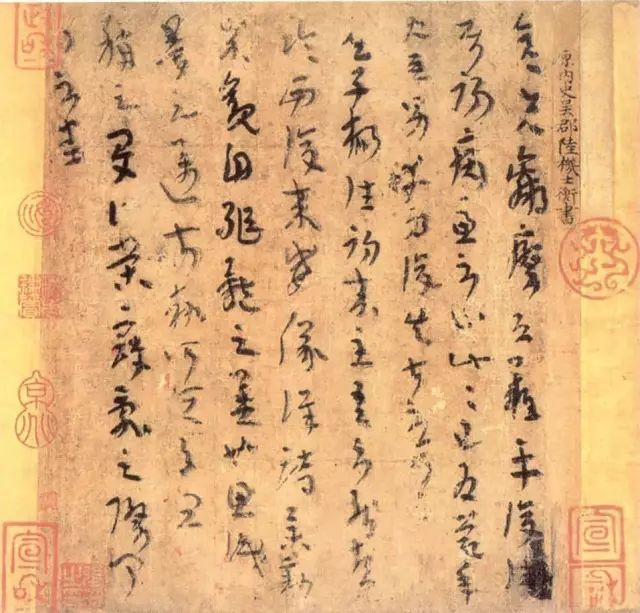 原內史吳郡陸機士衡書
彥先羸瘵恐難平復往屬
初病慮不止此此已為慶承
使唯男幸為復失前憂耳
吳子楊往初來主吾不能盡
臨西復來威儀詳跱舉動
成觀自軀體之美也思識
量之邁前執所恒有宜
稱之夏伯榮寇亂之際聞
問不悉
政和
宣和
宣和